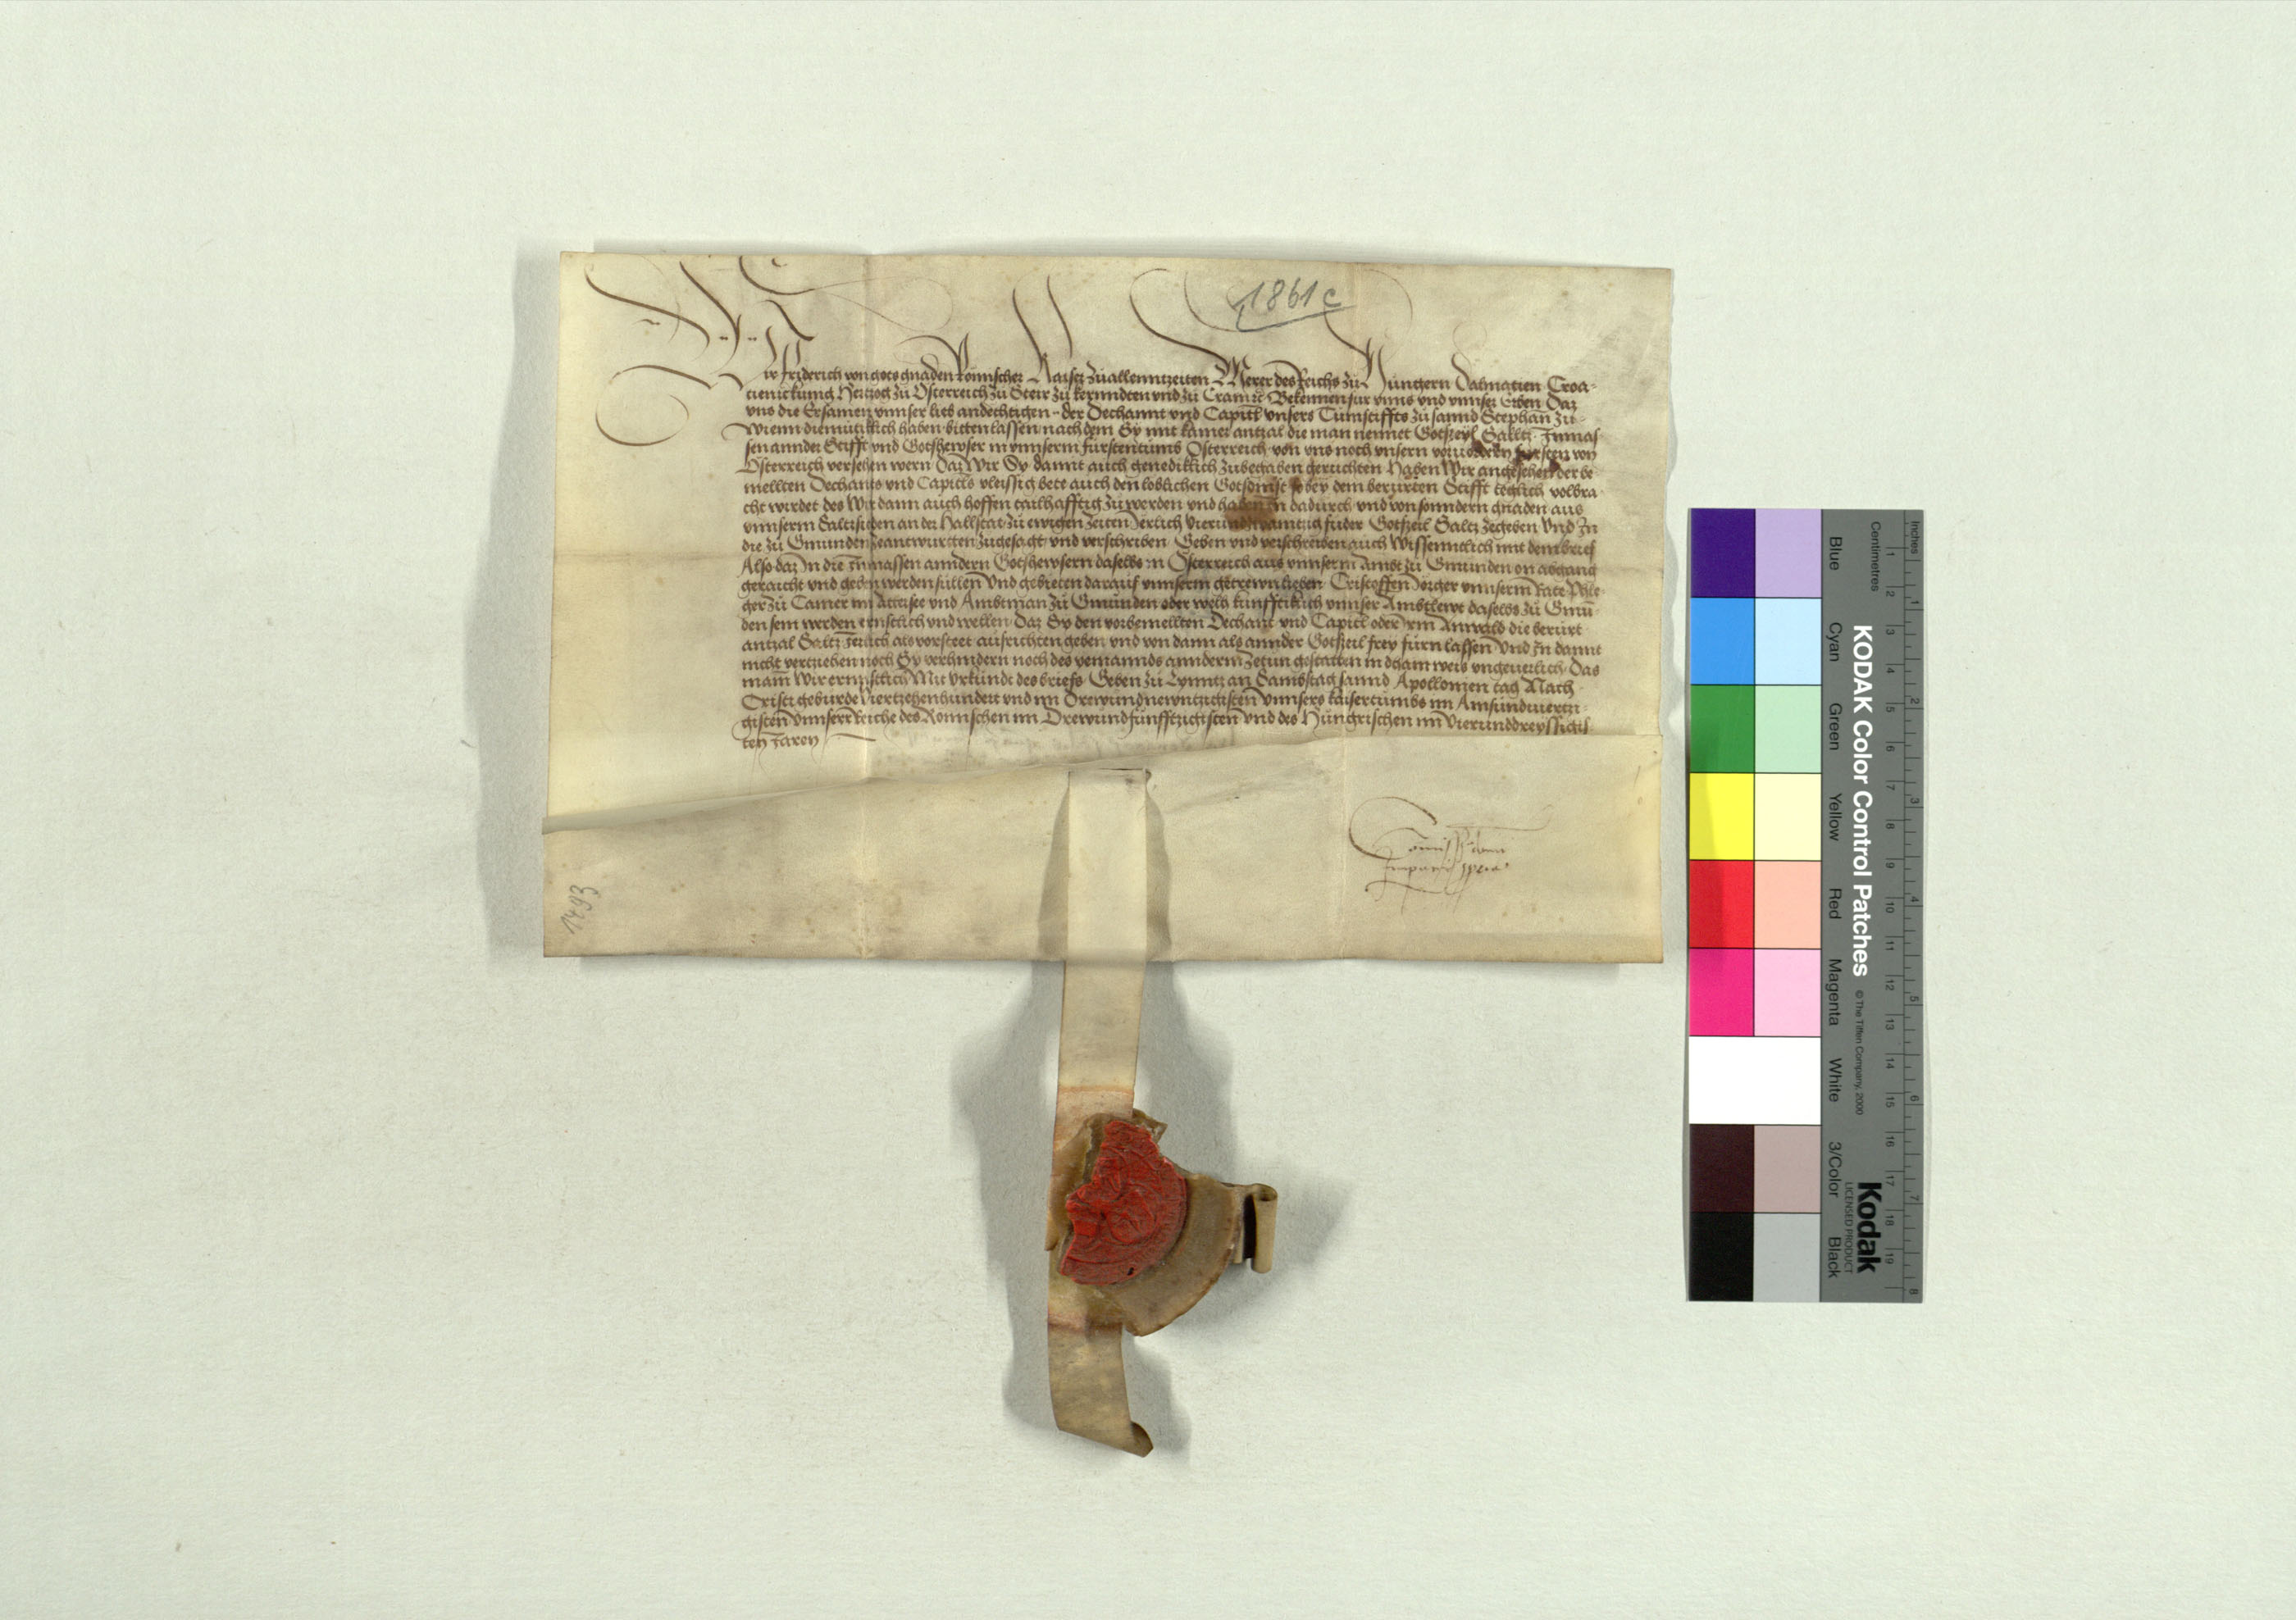 1861 c
Wir Friderich von gots gnaden Römischer Kaiser zu allenntzeiten Merer des Reichs zu Hungern Dalmatien Croa-
tien rc kunig Hertzog zu Osterreich zu Steir zu kernndten vnd zu Crain rc Bekennen fur vnns vnd vnnser Erben Daz
vns die Ersamen vnnser lieb andechtigen - der Dechannt vnd Capitl vnsers Tumstiffts zu sannd Stephan zu -
Wienn diemutiklich haben bitten lassen nach dem Sy mit kainer antzal die man nennet Gotszeyl Salltz Inmas
sen annder Stifft vnd Gotshewser in vnnserm furstentumb Osterreich von vns noch vnsern vorvordern fursten von
Osterreich versehen wern Daz Wir Sy damit auch genediklich zubegaben geruchten Haben Wir angesehen der be
mellten Dechants vnd Capitls vleissig bete auch den loblichen Gotsdinst so bey dem berurten Stifft teglich volbra
cht wirdet des Wir dann auch hoffen tailhafftig zu werden vnd haben In dadurch vnd von sonndern gnaden aus
vnnserm Saltzsieden an der Hallstat zu ewigen zeiten Jerlich vierundzwaintzig fuder Gotszeil Saltz zegeben vnd In
die zu Gmunden zeantwurtten zugesagt vnd verschriben Geben vnd verschreiben auch Wissenntlich mit dem brief
Also daz In die Inmassen anndern Gotshewsern daselbs in Osterreich aus vnnserm Ambt zu Gmunden on abgang
geraicht vnd geben werden sullen Vnd gebieten darauf vnnserm getrewn lieben Cristoffen Jörger vnnserm Rate Phle
ger zu Camer im Attersee vnd Ambtman zu Gmunden oder welh kunfftiklich vnnser Ambtlewt daselbs zu Gmu
den sein werden ernstlich vnd wellen Daz Sy den vorbemellten Dechant vnd Capitl oder irm Anwald die berurt
antzal Saltz Jerlich als vorsteet ausrichten geben vnd von dann als annder Gotszeil frey furn lassen Vnd In damit
nicht vertziehen noch Sy verhindern noch des yemannds annderm zetun gestatten in dhain weis vngeuerlich Das
main Wir ernnstlich Mit vrkundt des briefs Geben zu Lynntz an Sambstag sannd Apollonien tag Nach
Cristi geburde viertzehenhundert vnd im Drewundnewntzigisten Vnnsers kaisertumbs im Ainsundviertzi
gisten Vnnserr Reiche des Römischen im Drewundfunfftzigisten vnd des Hungrischen im vierunddreyssigis
ten Jaren
Comissio domini
Imperatoris propria
1493
KODAK Color Control Patches
© The Tiffen Company, 2000
Kodak
LICENSED PRODUCT
Blue Cyan Green Yellow Red Magenta White 3/Color Black
Centimetres 1 2 3 4 5 6 7 8 9 10 11 12 13 14 15 16 17 18 19
Inches 1 2 3 4 5 6 7 8